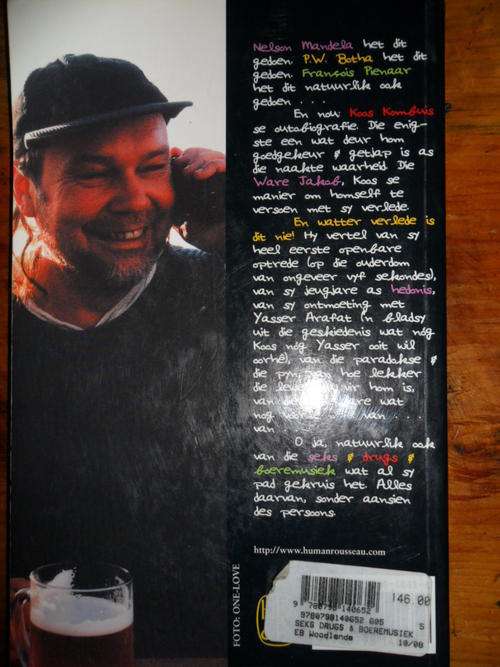 Nelson Mandela het dit
gedoen. P.W. Botha het dit
gedoen. François Pienaar
het dit natuurlik ook
gedoen . . .
En nou: Koos Kombuis
se outobiografie. Die enig-
ste een wat deur hom
goedgekeur & getjap is as
die naakte waarheid. Die
Ware Jakob, Koos se
manier om homself te
versoen met sy verlede.
En watter verlede is
dit nie! Hy vertel van sy
heel eerste openbare
optrede (op die ouderdom
van ongeveer vyf sekondes),
van sy jeugjare as hedonis,
van sy ontmoeting met
Yasser Arafat ('n bladsy
uit die geskiedenis wat nóg
Koos nóg Yasser ooit wil
oorhê), van die paradokse &
die pyn, van hoe lekker
die lewe vir hom is,
van die jare wat
nog van . . .
van
O ja, natuurlik ook
van die seks & drugs &
boeremusiek wat al sy
pad gekruis het. Alles
daarvan, sonder aansien
des persoons.
http://www.humanrousseau.com
FOTO: ONE-LOVE
146.00
9 780798 140652
9780798140652 G05
SEKS DRUGS & BOEREMUSIEK
EB Woodlands 10/08
5